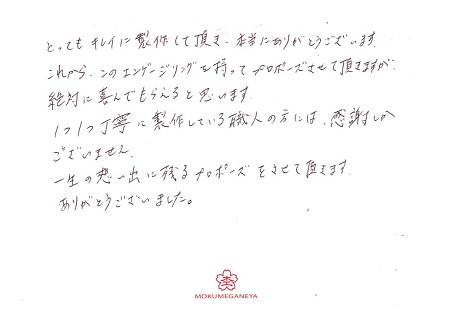 とってもキレイに製作して頂き、本当にありがとうございます
これから、このエンゲージリングを持ってプロポーズさせて頂きますが、
絶対に喜んでもらえると思います
1つ1つ丁寧に製作している職人の方には、感謝しか
ございません
一生の思い出に残るプロポーズをさせて頂きます
ありがとうございました。
MOKUMEGANEYA